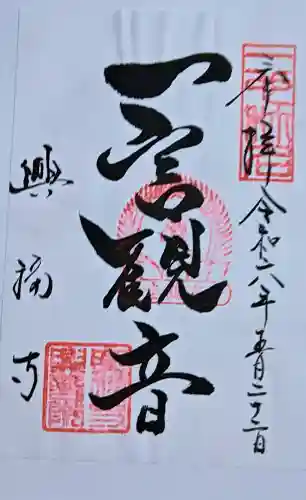 奉拝 令和六年五月二十二日
一言観音
興福寺